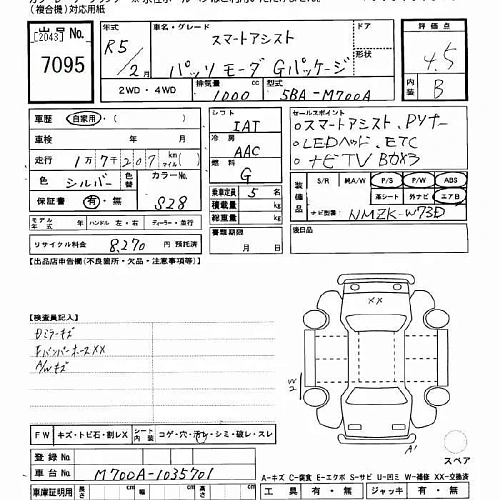 (複合機)対応用紙
出品No.
[2043]
7095
年式
R5
/2月
車名・グレード
スマートアシスト
パッソ モーダ Gパッケージ
ドア
評価点
4.5
内装
B
2WD・4WD
排気量
1000 cc
型式
5BA-M700A
車歴 自家用・( )
車検 年 月
走行 1万7千207 km マイル
色 シルバー 色替 カラーNo.
保証書 有・無 S28
モデル年式 年 ハンドル 左・右 ディーラー・並行
リサイクル料金 8,270円 預託済
シフト
IAT
冷房
AAC
燃料
G
乗車定員 5 名
積載量 kg
総重量 kg
書類期限
月 日
セールスポイント
・スマートアシスト、Dソナー
・LEDヘッド、ETC
・ナビTV
装備品
S/R M/A/W P/S P/W ABS
革シート 外ナビ エアB
ナビ型番 NMZK-W73D
後日品
【出品店申告欄(不良箇所・欠品・注意事項等)】
【検査員記入】
Dミラーキズ
FバンパーホースXX
A/Wキズ
XX
W2
A'
スペア
FW キズ・トビ石・割レX シート内装 コゲ・穴・汚レ・シミ・破レ・スレ
登録No.
車台No. M700A-1035701
車庫証明用 長さ cm 幅 cm 高さ cm
A-キズ C-腐食 E-エクボ S-サビ U-凹ミ W-補修 XX-交換済
工具 有・無 ジャッキ 有・無